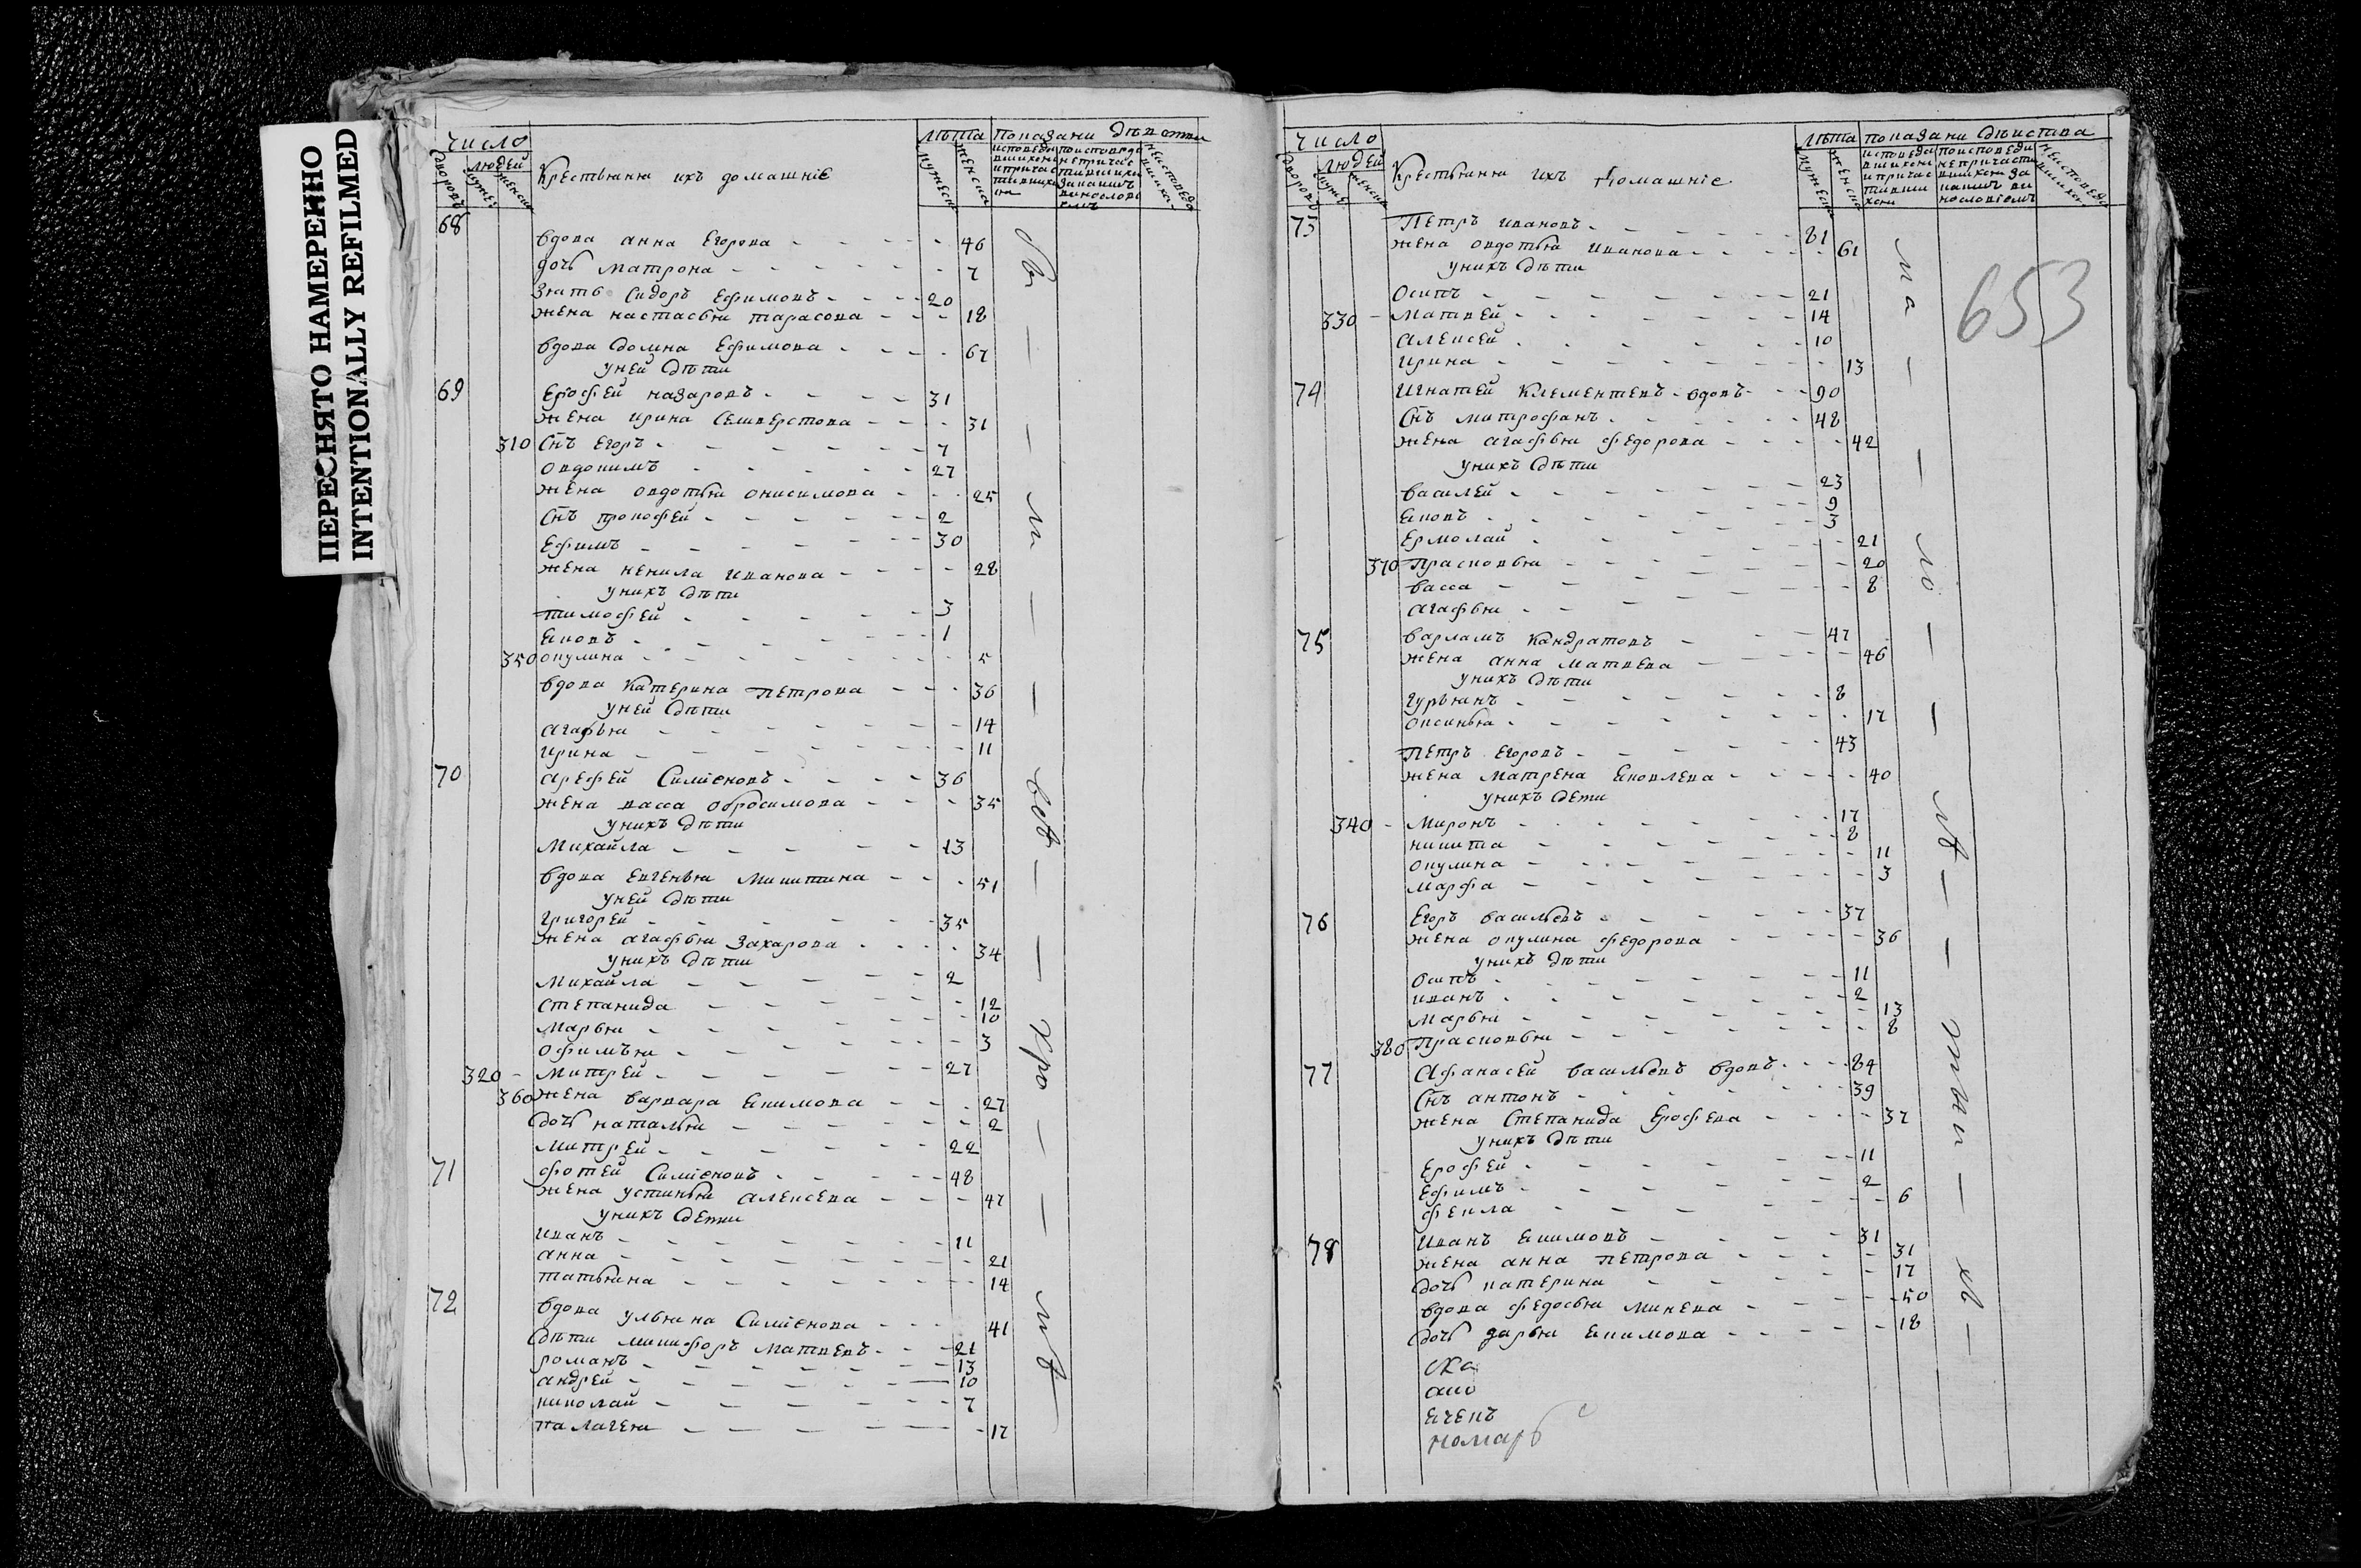 ПЕРЕСНЯТО НАМЕРЕННО
INTENTIONALLY REFILMED
число
людей
Крестьяня ихъ домашніе
лѣта
68
вдова анна Егорова 46
дочь матрона 7
Зять Сидоръ Ефимовъ 20
жена настасья тарасова 18
вдова Ефимова 67
уней дѣти
69 Ерофей назаровъ 31
жена ирина Селиверстова 31
310 Снъ Егоръ 7
овдокимъ 27
жена овдотья онисимова 25
Снъ прокофей 2
Ефимъ 30
жена ненила иванова 28
унихъ дѣти
тимофей 3
яковъ 1
350 окулина 5
вдова Катерина петрова 36
уней дѣти
агафья 14
ирина 11
70 арефей Симіеновъ 36
жена васса обросимова 35
унихъ дѣти
Михайла 13
вдова Евгенья Микитина 51
уней дѣти
Григорей 35
жена агафья Захарова 34
унихъ дѣти
Михайла 2
степанида 12
марья 10
офимья 3
320 митрей 27
360 жена варвара якимова 27
дочь наталья 2
митрей 22
71 фотей Симіеновъ 48
жена устинья алексева 47
унихъ дети
иванъ 11
анна 21
татьяна 14
72 вдова ульяна Симіенова 41
дѣти микифоръ матвевъ 21
романъ 13
андрей 10
николай 7
палагея 17
число
людей
Крестьяня ихъ домашніе
лѣта
653
73 Петръ ивановъ 81
жена овдотья иванова 61
унихъ дѣти
осипъ 21
330 матвей 14
алексей 10
ирина 13
74 игнатей Клементевъ вдовъ 90
Снъ митрофанъ 48
жена агафья федорова 42
унихъ дѣти
василей 23
яковъ 9
Ермолай 3
370 Прасковья 21
васса 20
агафья 8
75 варламъ Кандратовъ 47
жена анна матвева 46
унихъ дѣти
гурьянъ 8
оксинья 17
Петръ Егоровъ 43
жена матрена яковлева 40
унихъ дети
340 Миронъ 17
никита 8
окулина 11
марфа 3
76 Егоръ васильевъ 37
жена окулина федорова 36
унихъ дѣти
осипъ 11
иванъ 2
марья 13
380 Прасковья 8
77 афанасей васильевъ вдовъ 84
Снъ антонъ 39
жена Степанида Ерофева 37
унихъ дѣти
Ерофей 11
Ефимъ 2
фекла 6
78 иванъ якимовъ 31
жена анна петрова 31
дочь катерина 17
вдова федосья минева 50
дочь дарья якимова 18